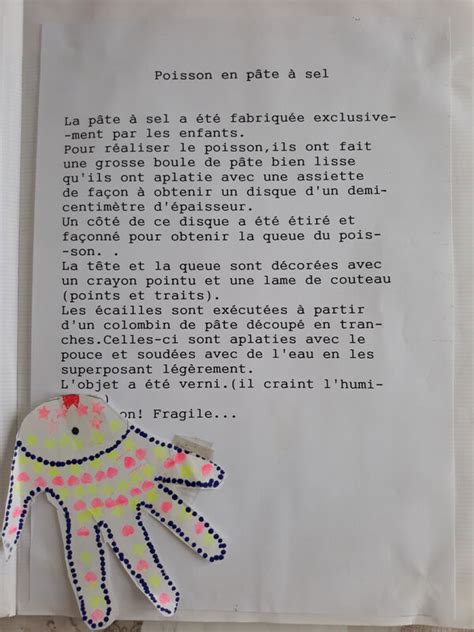 Poisson en pâte à sel
La pâte à sel a été fabriquée exclusive-
-ment par les enfants.
Pour réaliser le poisson,ils ont fait
une grosse boule de pâte bien lisse
qu'ils ont aplatie avec une assiette
de façon à obtenir un disque d'un demi-
centimètre d'épaisseur.
Un côté de ce disque a été étiré et
façonné pour obtenir la queue du pois-
-son. .
La tête et la queue sont décorées avec
un crayon pointu et une lame de couteau
(points et traits).
Les écailles sont exécutées à partir
d'un colombin de pâte découpé en tran-
ches.Celles-ci sont aplaties avec le
pouce et soudées avec de l'eau en les
superposant légèrement.
L'objet a été verni.(il craint l'humi-
on! Fragile...